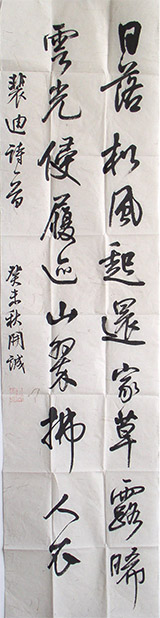 日落松風起還家草露晞
雲光侵履迹山翠拂人衣
裴迪詩一首
癸未秋開誠